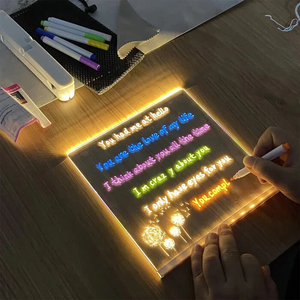 You had me at hello
You are the love of my life
I think about you all the time
I m crazy about you
I only have eyes for you